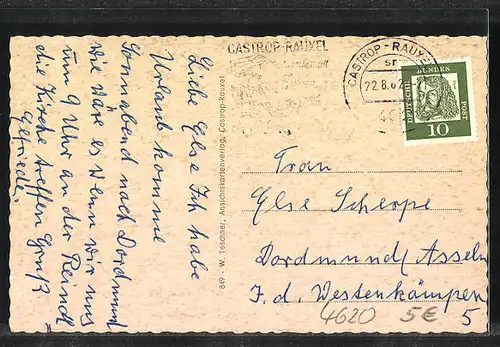 Liebe Else Ich habe
Urlaub komme
Sonnabend nach Dordmund
Wie wäre es Wenn wir uns
um 9 Uhr an der Reinol
die Kirche treffen Gruß
Gefriede.
849 - W. Teschner, Ansichtskartenverlag, Castrop-Rauxel
CASTROP-RAUXEL
CASTROP-RAUXEL
22.8.6
DEUTSCHE BUNDESPOST
10
Frau
Else Scherpe
Dordmund/Asseln
I. d. Westenkämpen
5
4620 5€